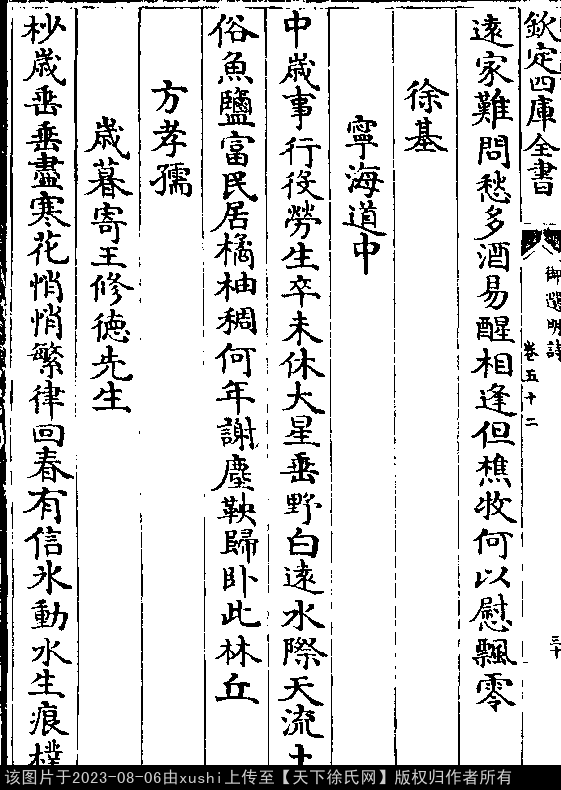 欽定四庫全書
御選明詩
卷五十二
三十
遠家難問愁多酒易醒相逢但樵牧何以慰飄零
徐基
寧海道中
中歲事行役勞生卒未休大星垂野白遠水際天流土
俗魚鹽富民居橘柚稠何年謝塵鞅歸卧此林丘
方孝孺
歲暮寄王修德先生
杪歲垂垂盡寒花悄悄繁律回春有信氷動水生痕樸
该图片于2023-08-06由xushi上传至【天下徐氏网】版权归作者所有